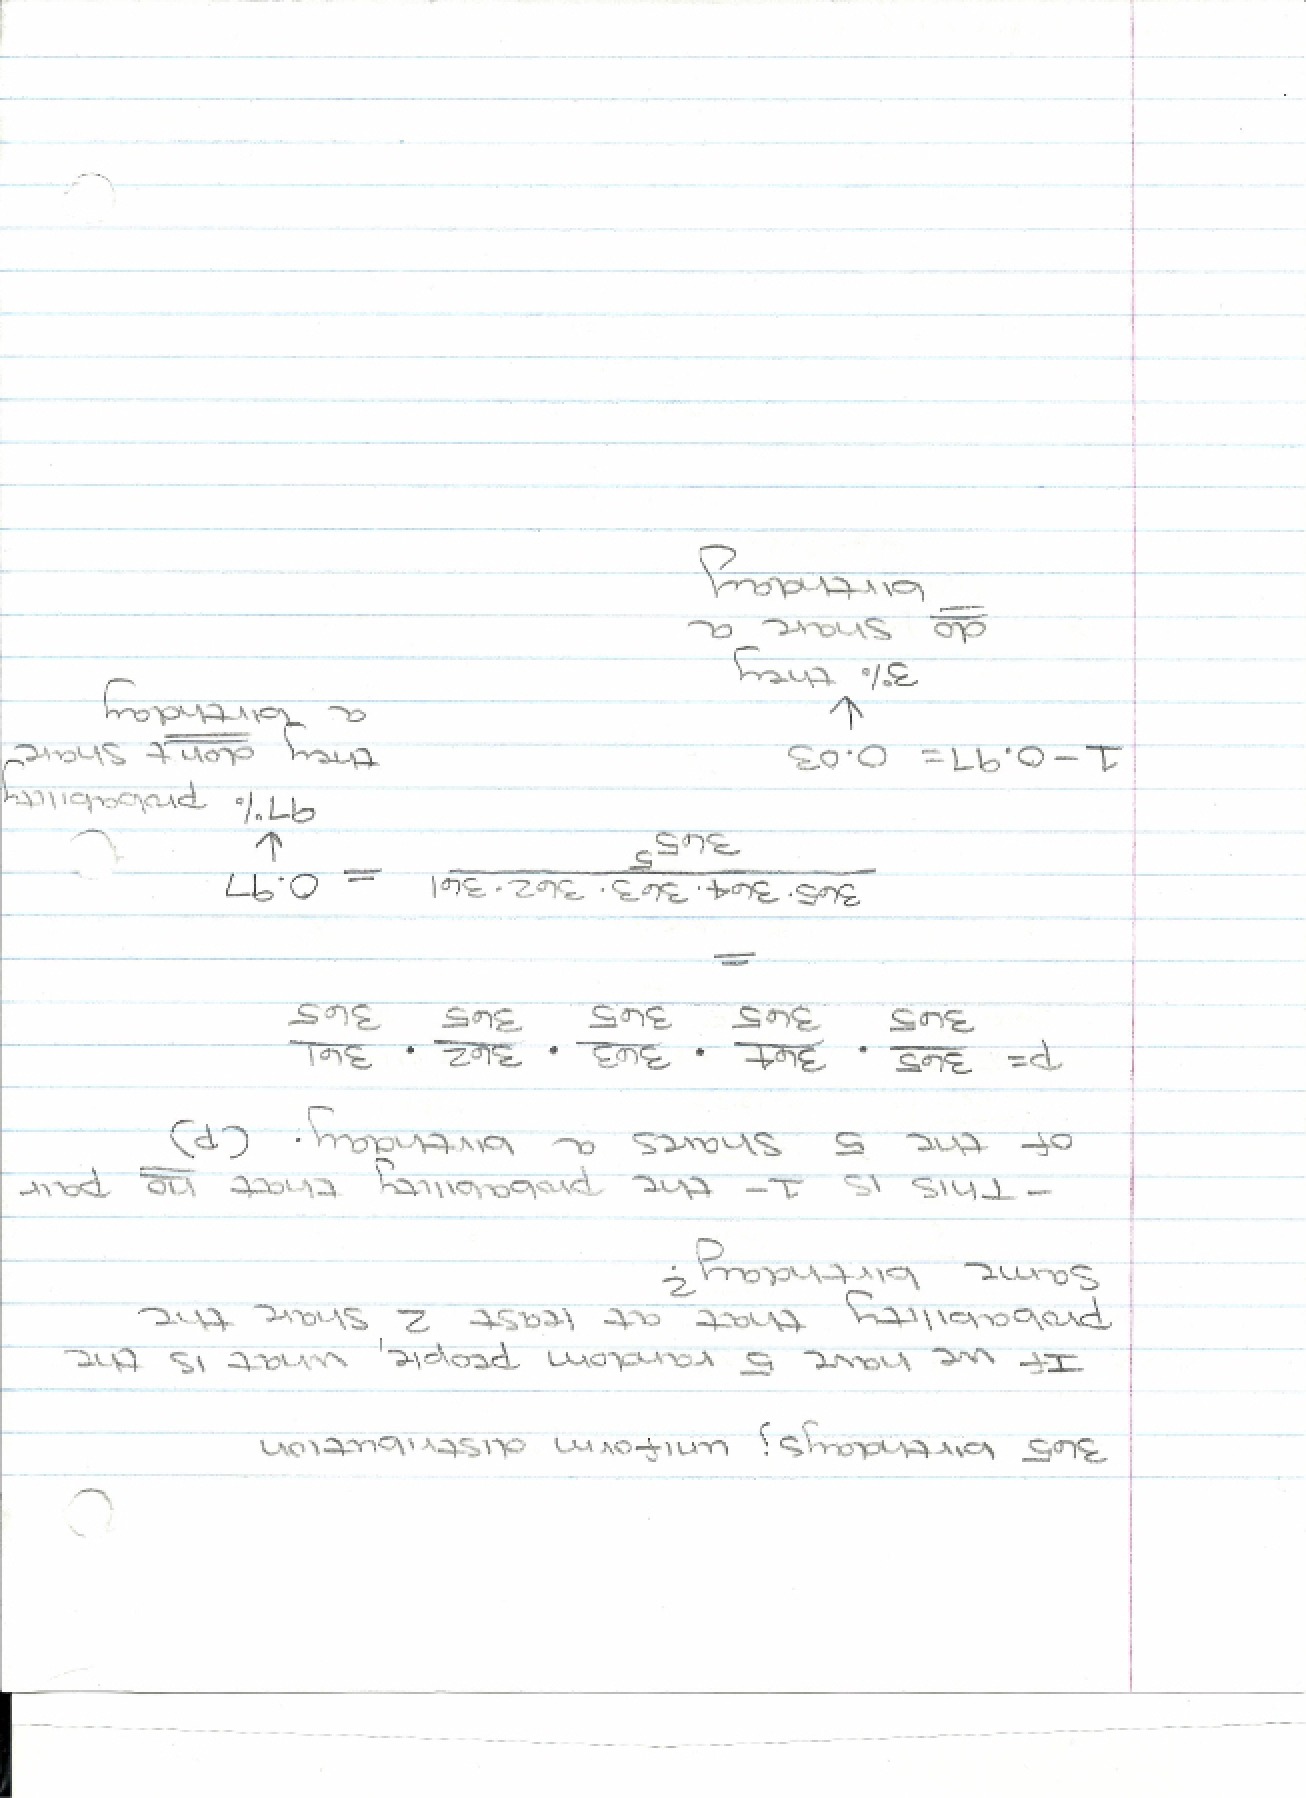 365 birthdays; uniform distribution
If we have 5 random people, what is the
probability that at least 2 share the
same birthday?
- This is 1- the probability that no pair
of the 5 shares a birthday. (P)
p= 365/365 · 364/365 · 363/365 · 362/365 · 361/365
=
365·364·363·362·361 / 365⁵ = 0.97
↓
97% probability
they don't share
a birthday
1-0.97= 0.03
↓
3% they
do share a
birthday